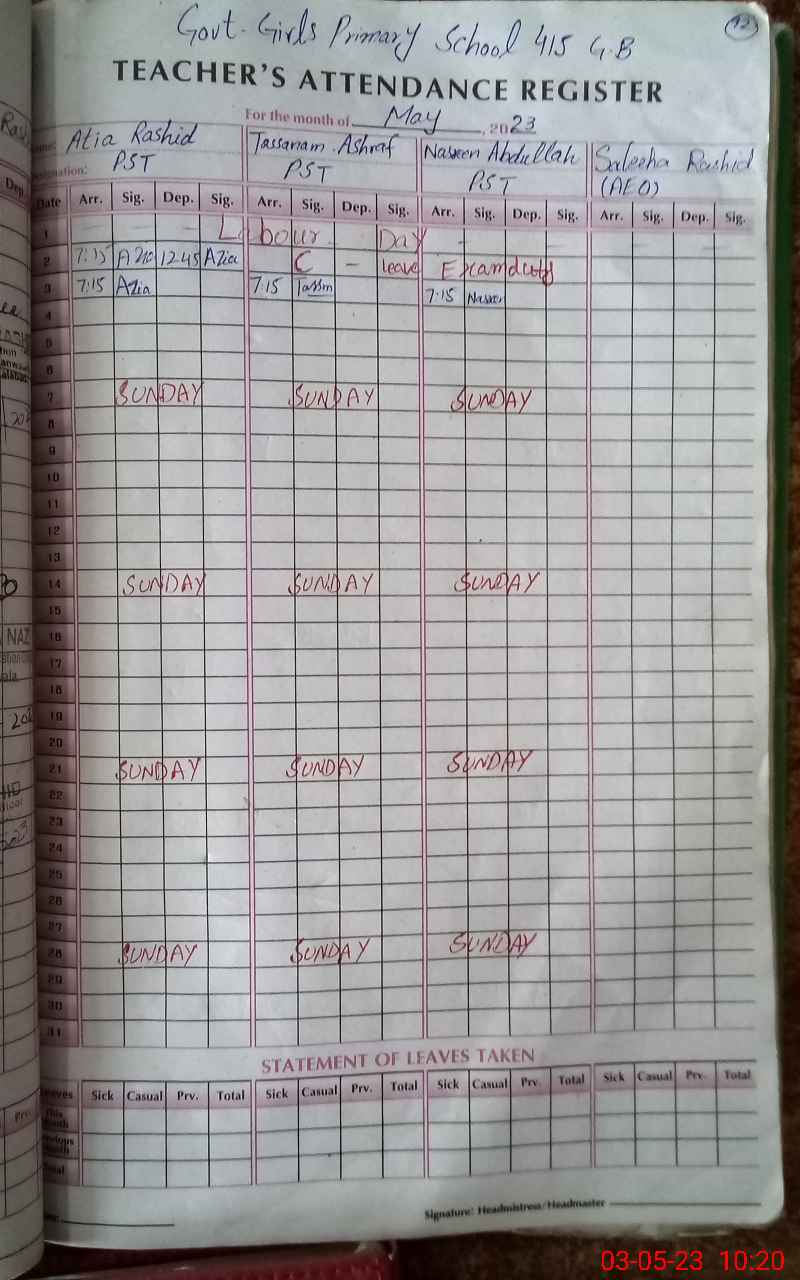 Govt. Girls Primary School 415 G.B
TEACHER'S ATTENDANCE REGISTER
For the month of May, 2023
Atia Rashid Tassanam Ashraf Nasreen Abdullah Saleeha Rashid
PST PST PST (AEO)
Date Arr. Sig. Dep. Sig. Arr. Sig. Dep. Sig. Arr. Sig. Dep. Sig. Arr. Sig. Dep. Sig.
1 Labour Day
2 7:15 12:45 Azia C – leave Examduty
3 7:15 Azia 7:15 Tassm 7:15
4
5
6
7 SUNDAY SUNDAY SUNDAY
8
9
10
11
12
13
14 SUNDAY SUNDAY SUNDAY
15
16
17
18
19
20
21 SUNDAY SUNDAY SUNDAY
22
23
24
25
26
27
28 SUNDAY SUNDAY SUNDAY
29
30
31
STATEMENT OF LEAVES TAKEN
Sick Casual Prv. Total Sick Casual Prv. Total Sick Casual Prv. Total Sick Casual Prv. Total
Signature: Headmistress/Headmaster
03-05-23 10:20